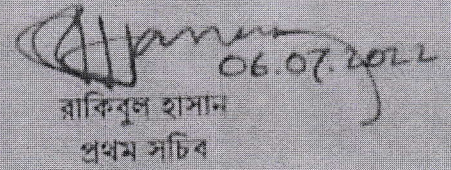 06.07.2022
রাকিবুল হাসান
প্রথম সচিব